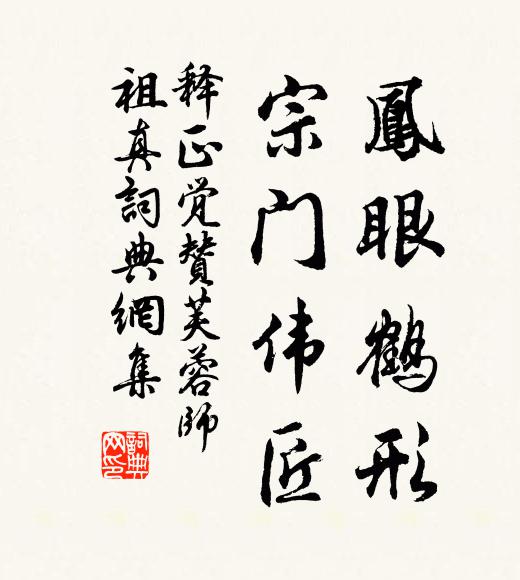 鳳眼鹤形
宗门伟匠
释正觉赞芙蓉師
祖真詞典網集
詞典网印